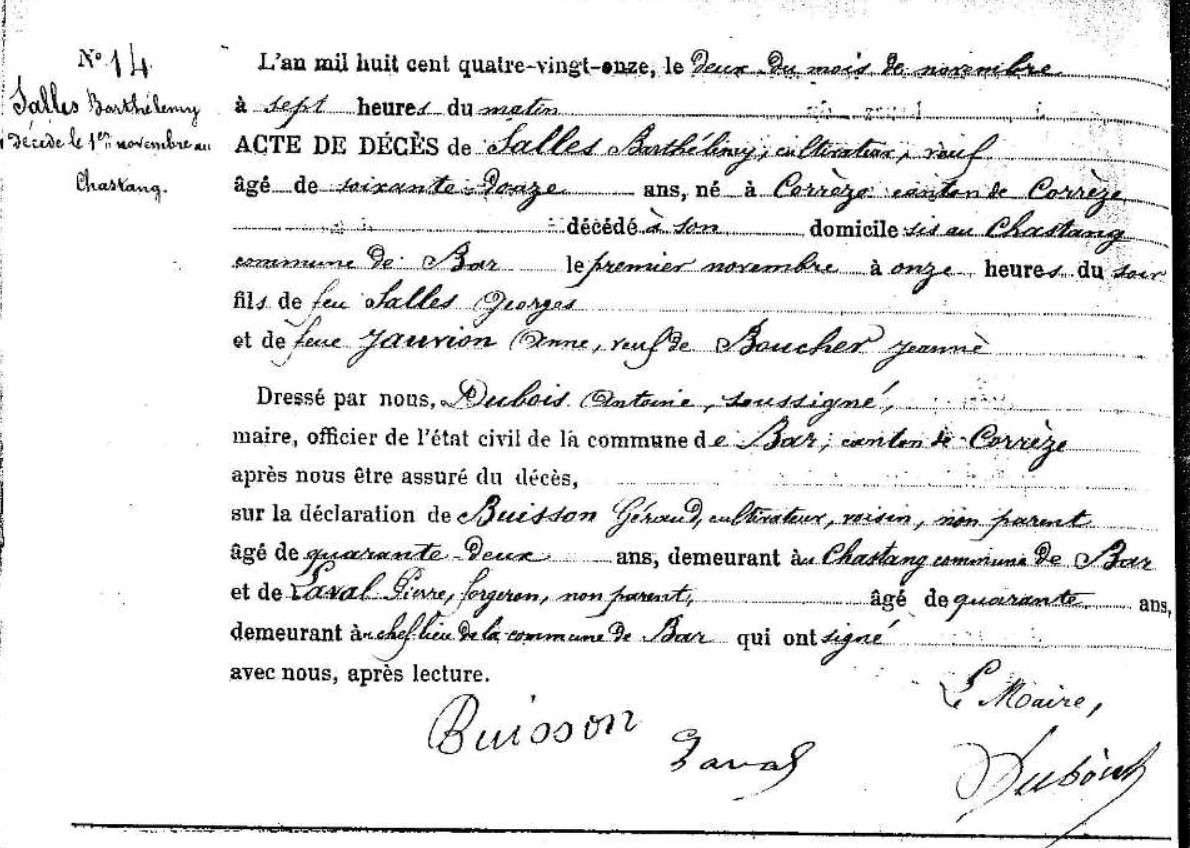 N° 14
Salles Barthélemy
décédé le 1er novembre au
Chastang.
L'an mil huit cent quatre-vingt-onze, le deux du mois de novembre
à sept heures du matin
ACTE DE DÉCÈS de Salles Barthélémy, cultivateur, veuf
âgé de soixante-douze ans, né à Corrèze canton de Corrèze
décédé à son domicile sis au Chastang
commune de Bar le premier novembre à onze heures du soir
fils de feu Salles Georges
et de feue Jauvion Anne, veuf de Boucher Jeanne
Dressé par nous, Dubois Antoine, soussigné,
maire, officier de l'état civil de la commune de Bar, canton de Corrèze
après nous être assuré du décès,
sur la déclaration de Buisson Géraud, cultivateur, voisin, non parent
âgé de quarante-deux ans, demeurant au Chastang commune de Bar
et de Laval Pierre, forgeron, non parent, âgé de quarante ans,
demeurant au chef-lieu de la commune de Bar qui ont signé
avec nous, après lecture.
Le Maire,
Buisson
Laval
Dubois